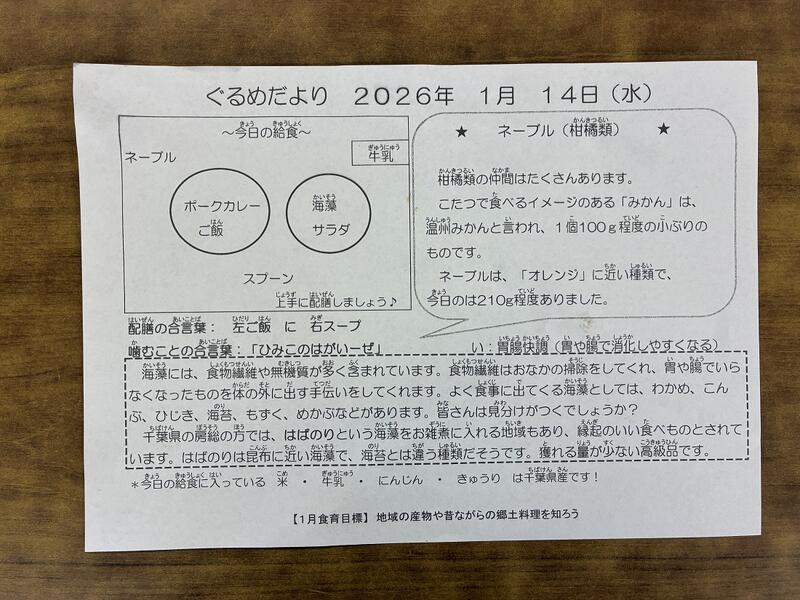 ぐるめだより　2026年　1月　14日（水）
～今日の給食～
ネーブル
牛乳
ポークカレー
ご飯
海藻
サラダ
スプーン
上手に配膳しましょう♪
★　ネーブル（柑橘類）　★
柑橘類の仲間はたくさんあります。
こたつで食べるイメージのある「みかん」は、
温州みかんと言われ、1個100g程度の小ぶりの
ものです。
ネーブルは、「オレンジ」に近い種類で、
今日のは210g程度ありました。
配膳の合言葉：　左ご飯　に　右スープ
噛むことの合言葉：「ひみこのはがいーぜ」　い：胃腸快調（胃や腸で消化しやすくなる）
海藻には、食物繊維や無機質が多く含まれています。食物繊維はおなかの掃除をしてくれ、胃や腸でいら
なくなったものを体の外に出す手伝いをしてくれます。よく食事に出てくる海藻としては、わかめ、こん
ぶ、ひじき、海苔、もずく、めかぶなどがあります。皆さんは見分けがつくでしょうか？
千葉県の房総の方では、はばのりという海藻をお雑煮に入れる地域もあり、縁起のいい食べものとされて
います。はばのりは昆布に近い海藻で、海苔とは違う種類だそうです。獲れる量が少ない高級品です。
＊今日の給食に入っている　米　・　牛乳　・　にんじん　・　きゅうり　は千葉県産です！
【1月食育目標】地域の産物や昔ながらの郷土料理を知ろう